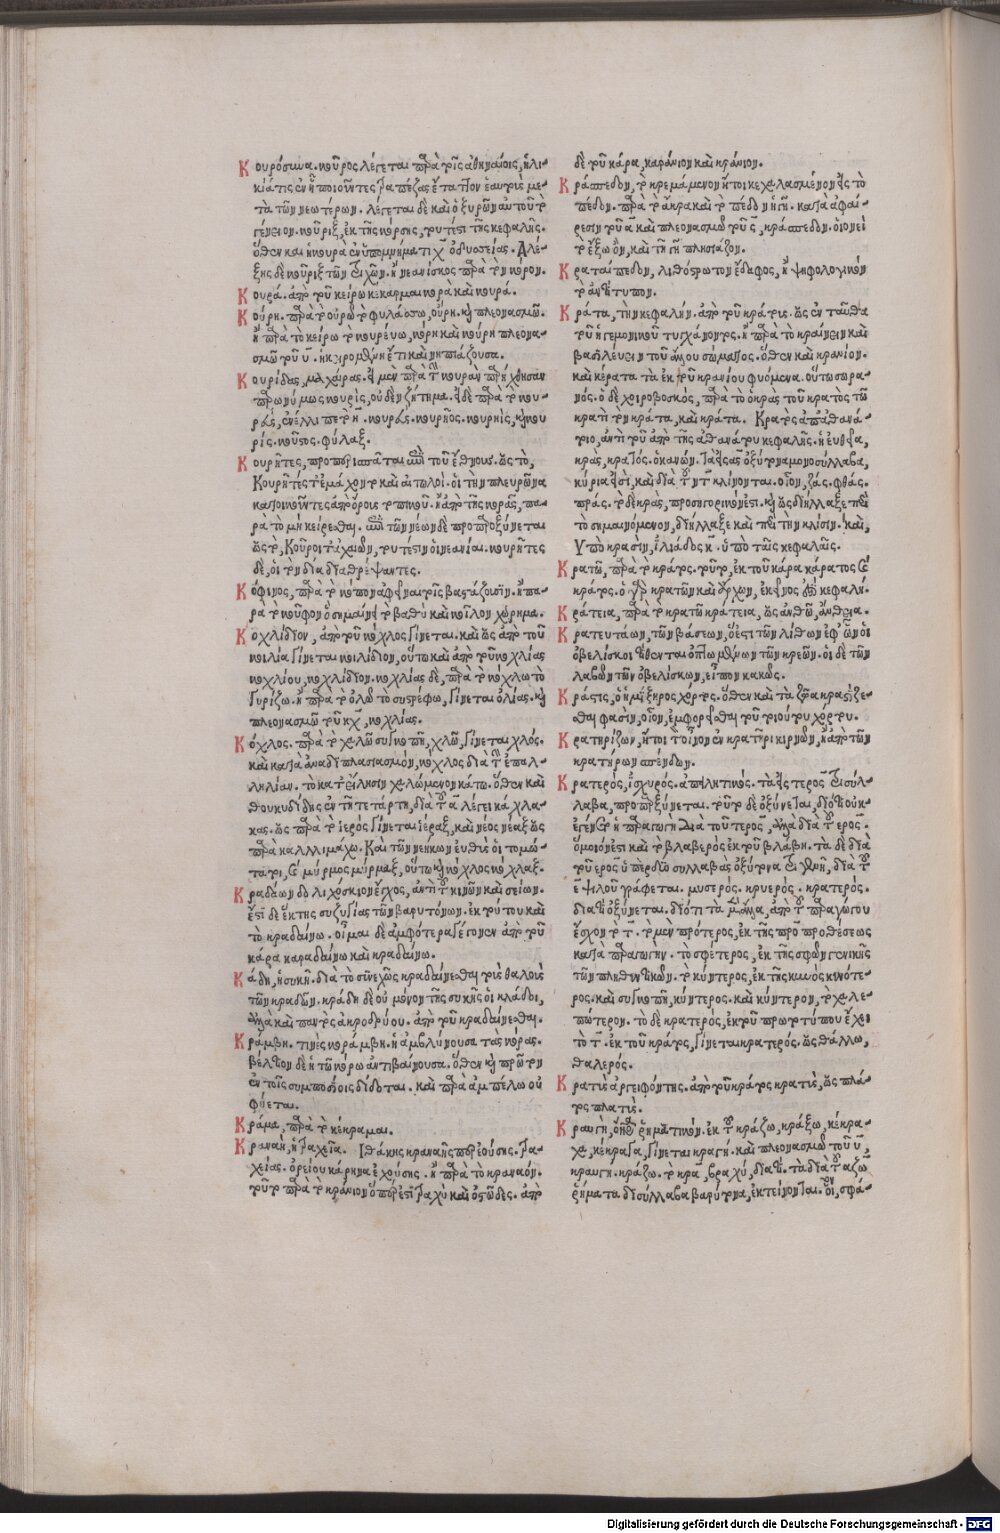 Κουρόσυνα. κοῦρος λέγεται παρὰ τοῖς ἀθηναίοις, ἡλι-
κία τις ἐν ᾗ ποιοῦντες
τὰ τῶν νεωτέρων. λέγεται δὲ καὶ ὁ ξυρῶν αὐτοῦ τὸ
γένειον. κοῦριξ, ἐκ τῆς κόρσης, τουτέστι τῆς κεφαλῆς.
ὅθεν καὶ ἡ κουρὰ ἐν ὑπομνήματι χ ὀδυσσείας. Ἀλέ-
ξης δὲ κοῦριξ τῶν τριχῶν. ἢ νεανίσκος παρὰ τὸν κόρον.
Κουρά. ἀπὸ τοῦ κείρω κέκαρμαι κορὰ καὶ κουρά.
Κούρη. παρὰ τὸ οὐρῶ τὸ φυλάσσω, οὔρη. καὶ πλεονασμῷ.
ἢ παρὰ τὸ κείρω τὸ κουρεύω, κόρη καὶ κούρη πλεονα-
σμῷ τοῦ υ. ἡ κειρομένη ἔτι καὶ νηπιάζουσα.
Κουρίδας, μαχαίρας. εἰ μὲν παρὰ τὴν κουρὰν παρήχθησαν
κουρίς, οὐδὲν ζήτημα. εἰ δὲ παρὰ τὸ κου-
ρίς. κοῦρος. φύλαξ.
Κουρῆτες, προπερισπᾶται ἐπὶ τοῦ ἔθνους. ὡς τὸ,
Κουρῆτές τ' ἐμάχοντο καὶ αἰτωλοί. οἱ τὴν πλευρῶνα
κατοικοῦντες ἀπὸ ὄρους τοῦ πίνου. ἢ ἀπὸ τῆς κορᾶς, πα-
ρὰ τὸ μὴ κείρεσθαι. ἐπὶ τῶν νέων δὲ προπαροξύνεται
ὡς τὸ, Κοῦροι τ' ἀχαιῶν, τουτέστιν οἱ νεανίαι. κουρῆτες
δὲ, οἱ τὸν δία διαθρέψαντες.
Κόφινος, παρὰ τὸ κόπον ἀφεῖναι τοῖς βαστάζουσιν. ἢ πα-
ρὰ τὸ κοῦφον ὃ σημαίνει τὸ βαθὺ καὶ κοῖλον χώρημα.
Κοχλίδιον, ἀπὸ τοῦ κόχλος γίνεται. καὶ ὡς ἀπὸ τοῦ
κοιλία γίνεται κοιλίδιον, οὕτω καὶ ἀπὸ τοῦ κοχλίας
κοχλίου, κοχλίδιον. κοχλίας δὲ, παρὰ τὸ κοχλῶ τὸ
γυρίζω. ἢ παρὰ τὸ ὀλῶ τὸ συστρέφω, γίνεται ὀλίας. καὶ
πλεονασμῷ τοῦ κχ, κοχλίας.
Κόχλος. παρὰ τὸ χαλῶ συγκοπῇ, χλῶ, γίνεται χλός.
καὶ κατὰ ἀναδιπλασιασμὸν, κόχλος διὰ τὴν ἐπάλ-
ληλίαν. τὸ κατ' εἴλησιν χαλώμενον κάτω. ὅθεν καὶ
θουκυδίδης ἐν τῇ τετάρτῃ, διὰ τοῦ α λέγει κάχλα-
κας. ὡς παρὰ τὸ ἱερὸς γίνεται ἱέραξ, καὶ νέος νέαξ ὡς
παρὰ καλλιμάχῳ. Καὶ τῶν νενκων εὐθὺς οἱ τομώ-
τατοι, καὶ μύρμος μύρμαξ, οὕτω καὶ κόχλος κόχλαξ.
Κραδάων δολιχόσκιον ἔγχος, ἀντὶ τοῦ κινῶν καὶ σείων.
ἔστι δὲ ἕκτης συζυγίας τῶν βαρυτόνων. ἐκ τούτου καὶ
τὸ κραδαίνω. οἶμαι δὲ ἀμφότερα γέγονεν ἀπὸ τοῦ
κάρα καραδαίνω καὶ κραδαίνω.
Κάδη, ἡ συκῆ. διὰ τὸ συνεχῶς κραδαίνεσθαι τοῖς θαλοῖς
τῶν κραδῶν. κράδη δὲ οὐ μόνον τῆς συκῆς οἱ κλάδοι,
ἀλλὰ καὶ παντὸς ἀκροδρύου. ἀπὸ τοῦ κραδαίνεσθαι.
Κράμβη. τινὲς κοράμβη. ἡ ἀμβλύνουσα τὰς κόρας.
βέλτιον δὲ ἡ τῷ κόρῳ ἀντιβαίνουσα. ὅθεν καὶ πρῶτον
ἐν τοῖς συμποσίοις δίδοται. καὶ παρὰ ἀμπέλῳ οὐ
φύεται.
Κράμα, παρὰ τὸ κέκραμαι.
Κραναὴ, ἡ τραχεῖα. Ἰθάκης κραναῆς ὑπερεούσης. τρα-
χείας. ὀρείου κάρηνα ἐχούσης. ἢ παρὰ τὸ κραναόν.
τοῦτο παρὰ τὸ κρανίον ὅπερ ἐστὶ τραχὺ καὶ ὀστῶδες. ἀπὸ
δὲ τοῦ κάρα, καράνιον καὶ κράνιον.
Κράσπεδον, τὸ κρεμάμενον ἤτοι κεχαλασμένον εἰς τὸ
πέδον. παρὰ τὸ ἄκρα καὶ τὸ πέδον ἡ γῆ. κατὰ ἀφαί-
ρεσιν τοῦ α καὶ πλεονασμῷ τοῦ ς, κράσπεδον. οἱονεὶ
τὸ ἔξω ὂν, καὶ τῇ γῇ πλησιάζον.
Κραταίπεδον, λιθόστρωτον ἔδαφος, ἢ ψηφολογικὸν
τὸ ἀντίτυπον.
Κράτα, τὴν κεφαλήν. ἀπὸ τοῦ κράτος. ὡς ἐν ταῦθα
τοῦ ἡγεμονικοῦ τυγχάνοντος. ἢ παρὰ τὸ κραίνειν καὶ
βασιλεύειν τοῦ ἄλλου σώματος. ὅθεν καὶ κρανίον.
καὶ κέρατα τὰ ἐκ τοῦ κρανίου φυόμενα. οὕτως ὡρα-
νός. ὁ δὲ χοιροβοσκὸς, παρὰ τὸ ὁ κρὰς τοῦ κρατὸς τῷ
κρατὶ τὸν κράτα, καὶ κράτα. Κρατὸς ἀπ' ἀθανά-
τοιο, ἀντὶ τοῦ ἀπὸ τῆς ἀθανάτου κεφαλῆς. ἡ εὐθεῖα,
κρὰς, κρατός. ὁ κανών. τὰ εἰς ας ὀξύτονα μονοσύλλαβα,
κύρια εἰσὶ, καὶ διὰ τοῦ ντ κλίνονται. οἷον, ζάς. φθάς.
πράς. τὸ δὲ κρὰς, προσηγορικόν ἐστι. καὶ ὡς διήλλαξε περὶ
τὸ σημαινόμενον, διήλλαξε καὶ περὶ τὴν κλίσιν. καὶ,
Υπὸ κρασὶν, ἰλιάδος κ. ὑπὸ ταῖς κεφαλαῖς.
Κρατῶ, παρὰ τὸ κράτος. τοῦτο, ἐκ τοῦ κάρα κάρατος καὶ
κράτος. ὁ γὰρ κρατῶν καὶ ἄρχων, ἐκεῖνος ἔχει κεφαλήν.
Κράτεια, παρὰ τὸ κρατῶ κράτεια, ὡς ἀνθῶ, ἄνθεια.
Κρατευτάων, τῶν βάσεων, ὅ ἐστι τῶν λίθων ἐφ' ὧν οἱ
ὀβελίσκοι τίθενται ὀπτωμένων τῶν κρεῶν. οἱ δὲ τῶν
λαβῶν τῶν ὀβελίσκων, εἶπον κακῶς.
Κράστις, ὁ ἡμίξηρος χόρτος. ὅθεν καὶ τὰ ζῶα κραστίζε-
σθαι φασὶν, οἷον, ἐμφορεῖσθαι τοῦ τοιούτου χόρτου.
Κρατηρίζων, ἤτοι τὸ οἶνον ἐν κρατῆρι κιρνῶν, ἢ ἀπὸ τῶν
κρατήρων σπένδων.
Κρατερὸς, ἰσχυρός. ἀπειλητικός. τὰ εἰς τερος τρισύλ-
λαβα, προπαροξύνεται. τοῦτο δὲ ὀξύνεται, διότι οὐκ
ἐγένετο ἡ παραγωγὴ διὰ τοῦ τερος, ἀλλὰ διὰ τοῦ ερος.
ὅμοιόν ἐστι καὶ τὸ βλαβερὸς ἐκ τοῦ βλάβη. τὰ δὲ διὰ
τοῦ ερος ὑπὲρ δύο συλλαβὰς ὀξύτονα τριγενῆ, διὰ τοῦ
ε ψιλοῦ γράφεται. μυσερός. κρυερός. κρατερός.
διατί ὀξύνεται. διότι τὰ μὲν ἄλλα, ἀπὸ τοῦ παραγώγου
ἔσχον τὸ τ. τὸ μὲν πρότερος, ἐκ τῆς πρὸ προθέσεως
κατὰ παραγωγήν. τὸ σφέτερος, ἐκ τῆς σφῶν γενικῆς
τῶν πληθυντικῶν. τὸ κύντερος, ἐκ τῆς κυνὸς κυνότε-
ρος. καὶ συγκοπῇ, κύντερος. καὶ κύντερον, τὸ χαλε-
πώτερον. τὸ δὲ κρατερὸς, ἐκ τοῦ πρωτοτύπου ἔχει
τὸ τ. ἐκ τοῦ κράτος, γίνεται κρατερός. ὡς θάλλω,
θαλερός.
Κρατὺς ἀργειφόντης. ἀπὸ τοῦ κράτος κρατὺς, ὡς πλά-
τος πλατύς.
Κραυγὴ, ὄνομα ῥηματικόν. ἐκ τοῦ κράζω, κράξω, κέκρα-
χα, κέκραγα, γίνεται κραγή. καὶ πλεονασμῷ τοῦ υ,
κραυγή. κράζω. τὸ κρα, βραχύ, διατί. τὰ διὰ τοῦ αζω
ῥήματα δισύλλαβα βαρύτονα, ἐκτείνονται. οἷον, σφά-
Digitalisierung gefördert durch die Deutsche Forschungsgemeinschaft - DFG